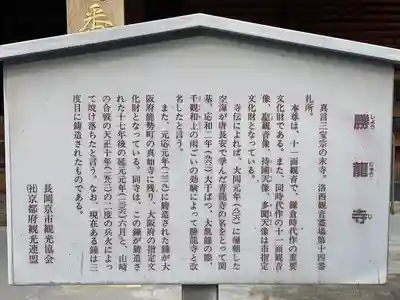 番
勝龍寺
しょう
りゅう
じ
真言三宝宗の末寺。洛西観音霊場第十四番
札所。
本尊は、十一面観音で、鎌倉時代作の重要
文化財である。また、同時代作の十一面観音
像、聖観音像、持国天像、多聞天像は市指定
文化財となっている。
寺伝によれば、大同元年(八〇六)に帰朝した
空海が唐長安で学んだ青龍寺の名をとって開
基。応和二年(九六二)大干ばつ、大飢饉の際、
千観和上の雨ごいの効験によって勝龍寺と改
名したと言う。
また、元応元年(一三一九)に鋳造された鐘が大
阪府能勢町の真如寺に残り、大阪府の指定文
化財となっている。同寺は、この鐘が鋳造さ
れた十七年後の延元元年(一三三六)六月と、山崎
の合戦の天正十年(一五八二)の二度の兵火によっ
て焼け落ちたと言う。なお、現在ある鐘は三
度目に鋳造されたものである。
長岡京市観光協会
㈳京都府観光連盟